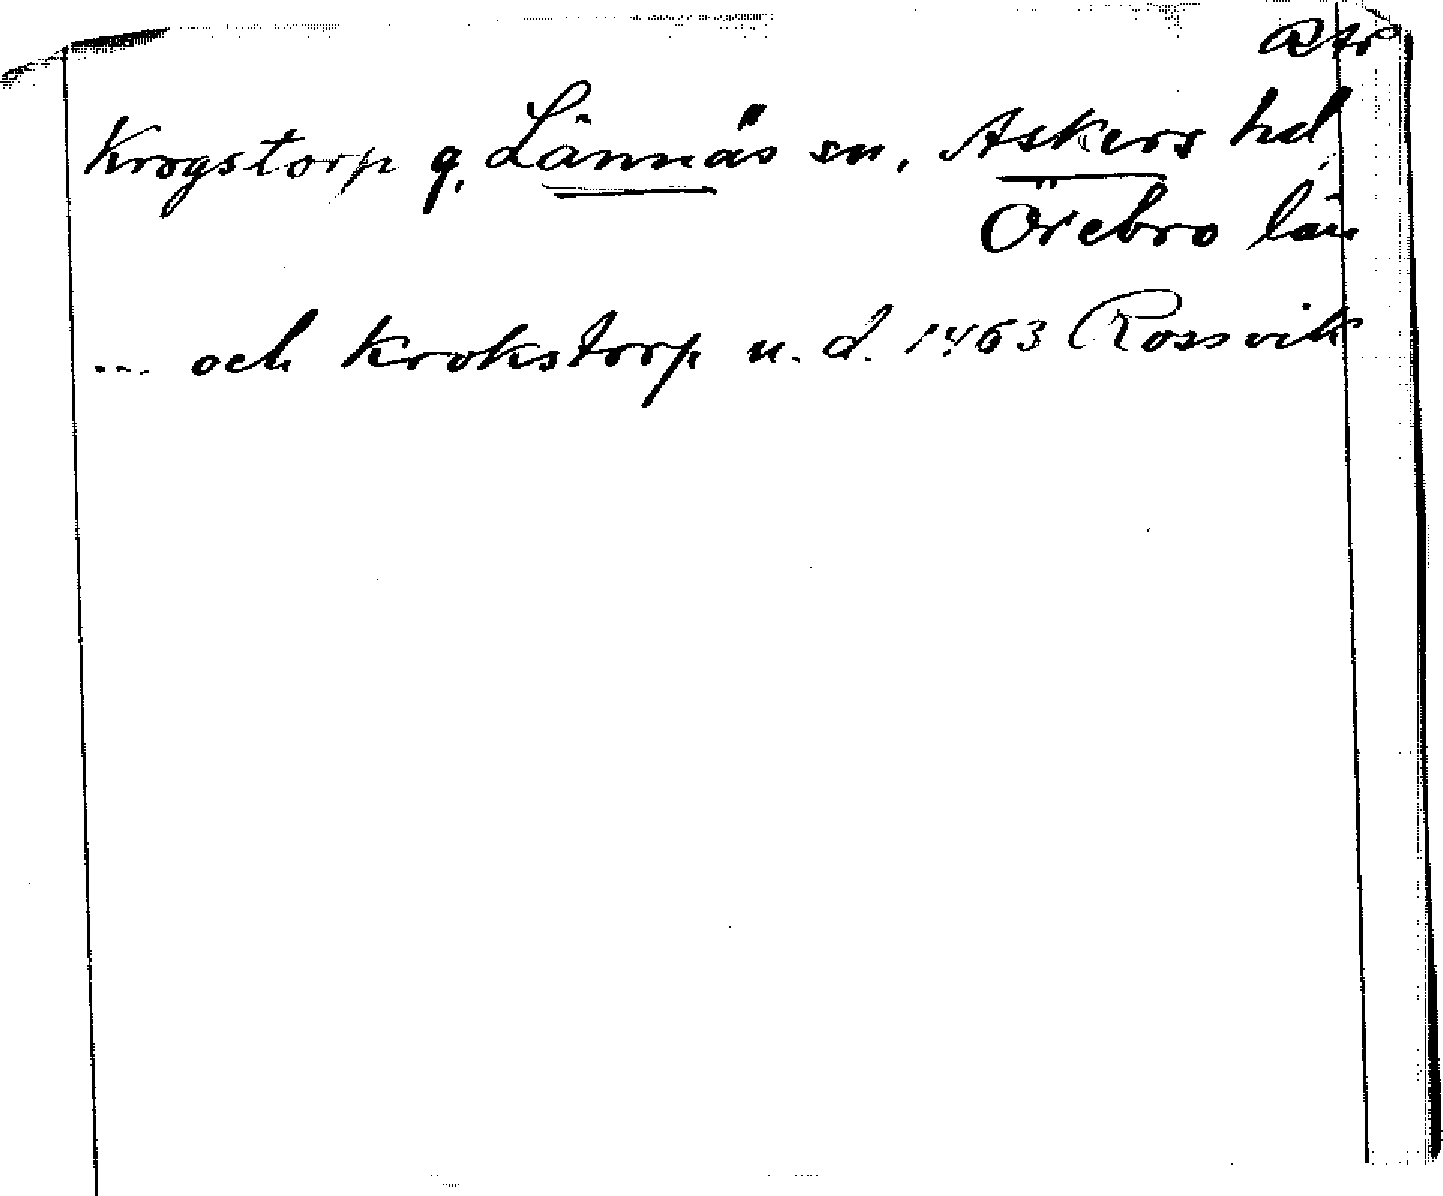 Krogstorp g, Lännäs sn, Askers hd,
Örebro län
... och Krokstorp u. d. 1463 Rossvik